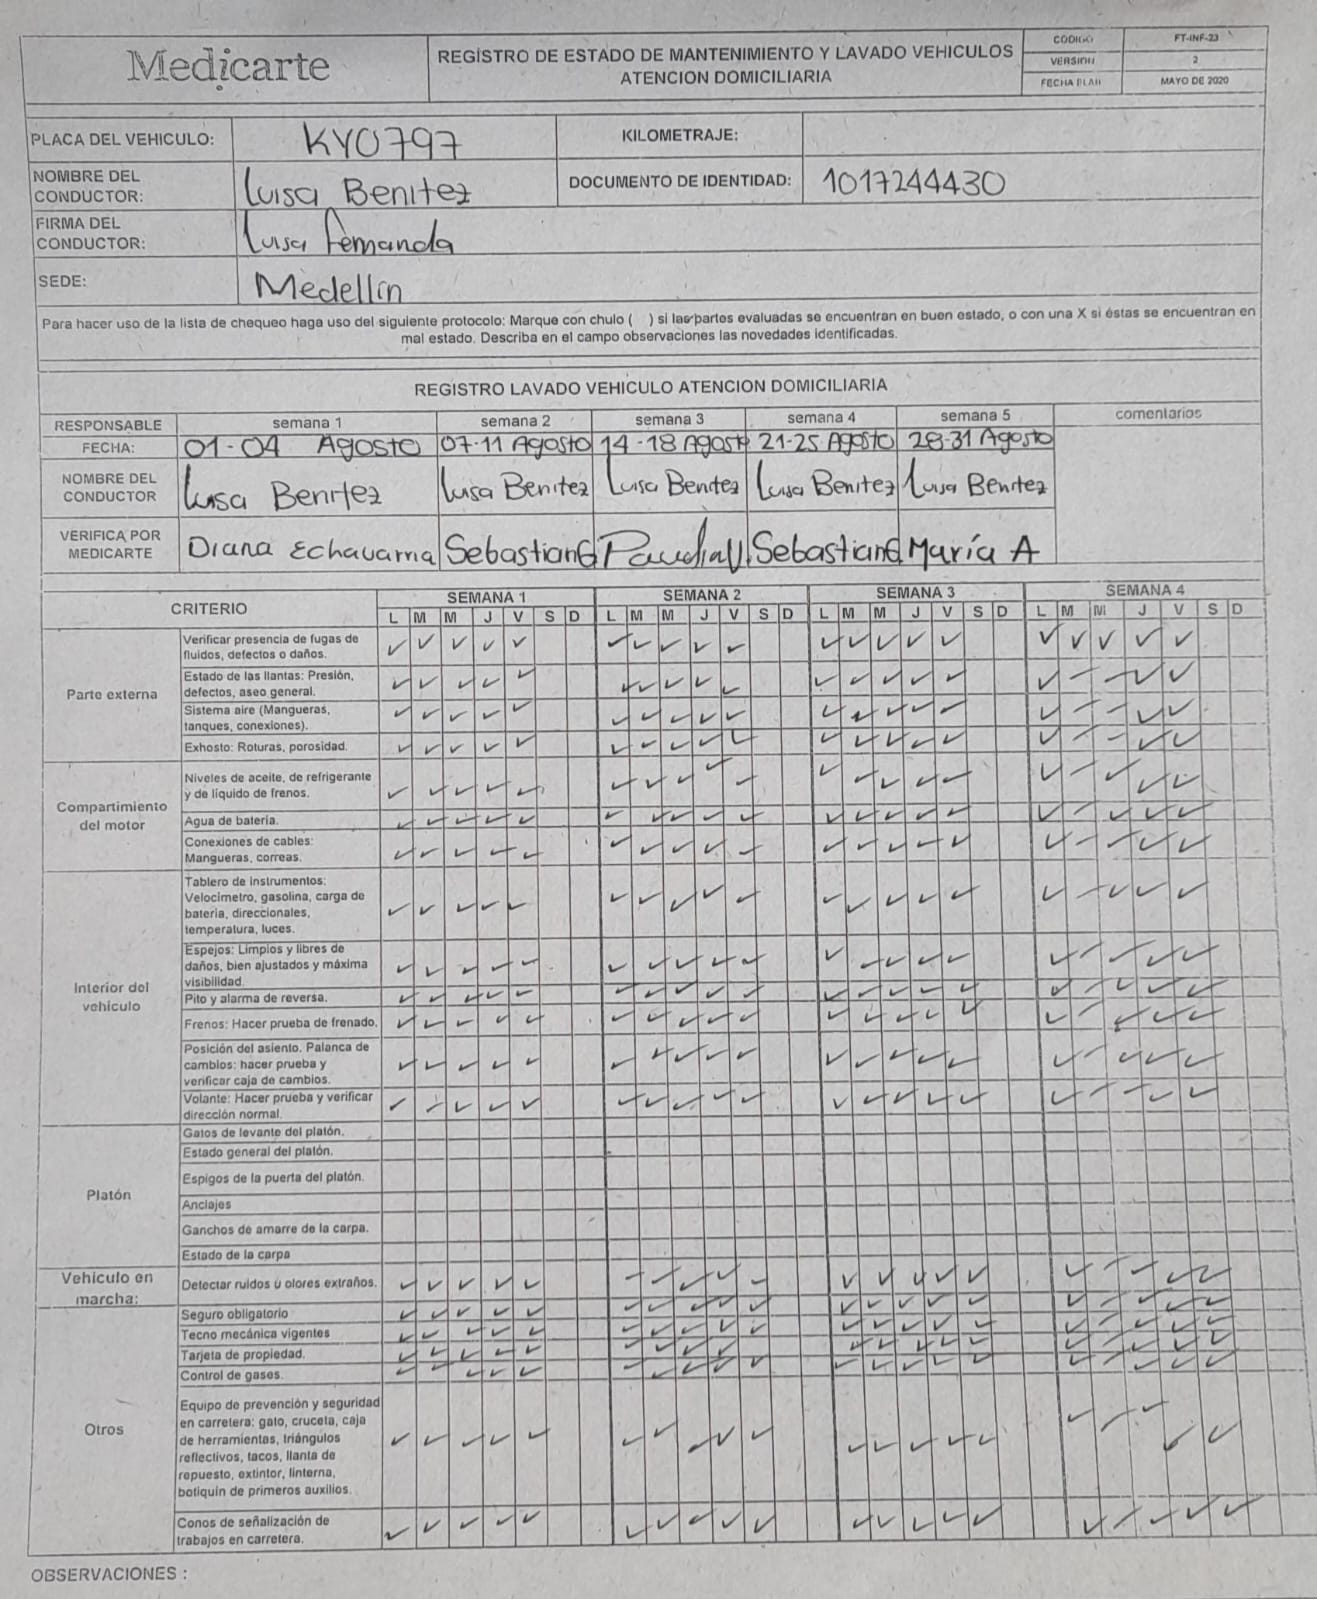 Medicarte
REGISTRO DE ESTADO DE MANTENIMIENTO Y LAVADO VEHICULOS
ATENCION DOMICILIARIA
CODIGO FT-INF-23
VERSION 2
FECHA PLAN MAYO DE 2020
PLACA DEL VEHICULO: KYO797 KILOMETRAJE:
NOMBRE DEL CONDUCTOR: Luisa Benitez DOCUMENTO DE IDENTIDAD: 1017244430
FIRMA DEL CONDUCTOR: Luisa Fernanda
SEDE: Medellin
Para hacer uso de la lista de chequeo haga uso del siguiente protocolo: Marque con chulo ( ) si las partes evaluadas se encuentran en buen estado, o con una X si éstas se encuentran en
mal estado. Describa en el campo observaciones las novedades identificadas.
REGISTRO LAVADO VEHICULO ATENCION DOMICILIARIA
RESPONSABLE semana 1 semana 2 semana 3 semana 4 semana 5 comentarios
FECHA: 01-04 Agosto 07-11 Agosto 14-18 Agosto 21-25 Agosto 28-31 Agosto
NOMBRE DEL CONDUCTOR Luisa Benitez Luisa Benitez Luisa Benitez Luisa Benitez Luisa Benitez
VERIFICA POR MEDICARTE Diana Echavarria SebastianG SebastianG María A
CRITERIO SEMANA 1 SEMANA 2 SEMANA 3 SEMANA 4
L M M J V S D L M M J V S D L M M J V S D L M M J V S D
Parte externa
Verificar presencia de fugas de
fluidos, defectos o daños. ✓ ✓ ✓ ✓ ✓ ✓ ✓ ✓ ✓ ✓ ✓ ✓ ✓ ✓ ✓ ✓ ✓ ✓ ✓ ✓
Estado de las llantas: Presión,
defectos, aseo general. ✓ ✓ ✓ ✓ ✓ ✓ ✓ ✓ ✓ ✓ ✓ ✓ ✓ ✓ ✓ ✓ ✓ ✓ ✓ ✓
Sistema aire (Mangueras,
tanques, conexiones). ✓ ✓ ✓ ✓ ✓ ✓ ✓ ✓ ✓ ✓ ✓ ✓ ✓ ✓ ✓ ✓ ✓ ✓ ✓ ✓
Exhosto: Roturas, porosidad. ✓ ✓ ✓ ✓ ✓ ✓ ✓ ✓ ✓ ✓ ✓ ✓ ✓ ✓ ✓ ✓ ✓ ✓ ✓ ✓
Compartimiento
del motor
Niveles de aceite, de refrigerante
y de liquido de frenos. ✓ ✓ ✓ ✓ ✓ ✓ ✓ ✓ ✓ ✓ ✓ ✓ ✓ ✓ ✓ ✓ ✓ ✓ ✓ ✓
Agua de bateria. ✓ ✓ ✓ ✓ ✓ ✓ ✓ ✓ ✓ ✓ ✓ ✓ ✓ ✓ ✓ ✓ ✓ ✓ ✓ ✓
Conexiones de cables:
Mangueras, correas. ✓ ✓ ✓ ✓ ✓ ✓ ✓ ✓ ✓ ✓ ✓ ✓ ✓ ✓ ✓ ✓ ✓ ✓ ✓ ✓
Interior del
vehiculo
Tablero de instrumentos:
Velocimetro, gasolina, carga de
bateria, direccionales,
temperatura, luces. ✓ ✓ ✓ ✓ ✓ ✓ ✓ ✓ ✓ ✓ ✓ ✓ ✓ ✓ ✓ ✓ ✓ ✓ ✓ ✓
Espejos: Limpios y libres de
daños, bien ajustados y máxima
visibilidad. ✓ ✓ ✓ ✓ ✓ ✓ ✓ ✓ ✓ ✓ ✓ ✓ ✓ ✓ ✓ ✓ ✓ ✓ ✓ ✓
Pito y alarma de reversa. ✓ ✓ ✓ ✓ ✓ ✓ ✓ ✓ ✓ ✓ ✓ ✓ ✓ ✓ ✓ ✓ ✓ ✓ ✓ ✓
Frenos: Hacer prueba de frenado. ✓ ✓ ✓ ✓ ✓ ✓ ✓ ✓ ✓ ✓ ✓ ✓ ✓ ✓ ✓ ✓ ✓ ✓ ✓ ✓
Posición del asiento. Palanca de
cambios: hacer prueba y
verificar caja de cambios. ✓ ✓ ✓ ✓ ✓ ✓ ✓ ✓ ✓ ✓ ✓ ✓ ✓ ✓ ✓ ✓ ✓ ✓ ✓ ✓
Volante: Hacer prueba y verificar
dirección normal. ✓ ✓ ✓ ✓ ✓ ✓ ✓ ✓ ✓ ✓ ✓ ✓ ✓ ✓ ✓ ✓ ✓ ✓ ✓ ✓
Platón
Gatos de levante del platón.
Estado general del platón.
Espigos de la puerta del platón.
Anclajes
Ganchos de amarre de la carpa.
Estado de la carpa
Vehiculo en
marcha:
Detectar ruidos u olores extraños. ✓ ✓ ✓ ✓ ✓ ✓ ✓ ✓ ✓ ✓ ✓ ✓ ✓ ✓ ✓ ✓ ✓ ✓ ✓ ✓
Otros
Seguro obligatorio ✓ ✓ ✓ ✓ ✓ ✓ ✓ ✓ ✓ ✓ ✓ ✓ ✓ ✓ ✓ ✓ ✓ ✓ ✓ ✓
Tecno mecánica vigentes ✓ ✓ ✓ ✓ ✓ ✓ ✓ ✓ ✓ ✓ ✓ ✓ ✓ ✓ ✓ ✓ ✓ ✓ ✓ ✓
Tarjeta de propiedad. ✓ ✓ ✓ ✓ ✓ ✓ ✓ ✓ ✓ ✓ ✓ ✓ ✓ ✓ ✓ ✓ ✓ ✓ ✓ ✓
Control de gases. ✓ ✓ ✓ ✓ ✓ ✓ ✓ ✓ ✓ ✓ ✓ ✓ ✓ ✓ ✓ ✓ ✓ ✓ ✓ ✓
Equipo de prevención y seguridad
en carretera: gato, cruceta, caja
de herramientas, triángulos
reflectivos, tacos, llanta de
repuesto, extintor, linterna,
botiquin de primeros auxilios. ✓ ✓ ✓ ✓ ✓ ✓ ✓ ✓ ✓ ✓ ✓ ✓ ✓ ✓ ✓ ✓ ✓ ✓ ✓ ✓
Conos de señalización de
trabajos en carretera. ✓ ✓ ✓ ✓ ✓ ✓ ✓ ✓ ✓ ✓ ✓ ✓ ✓ ✓ ✓ ✓ ✓ ✓ ✓ ✓
OBSERVACIONES :